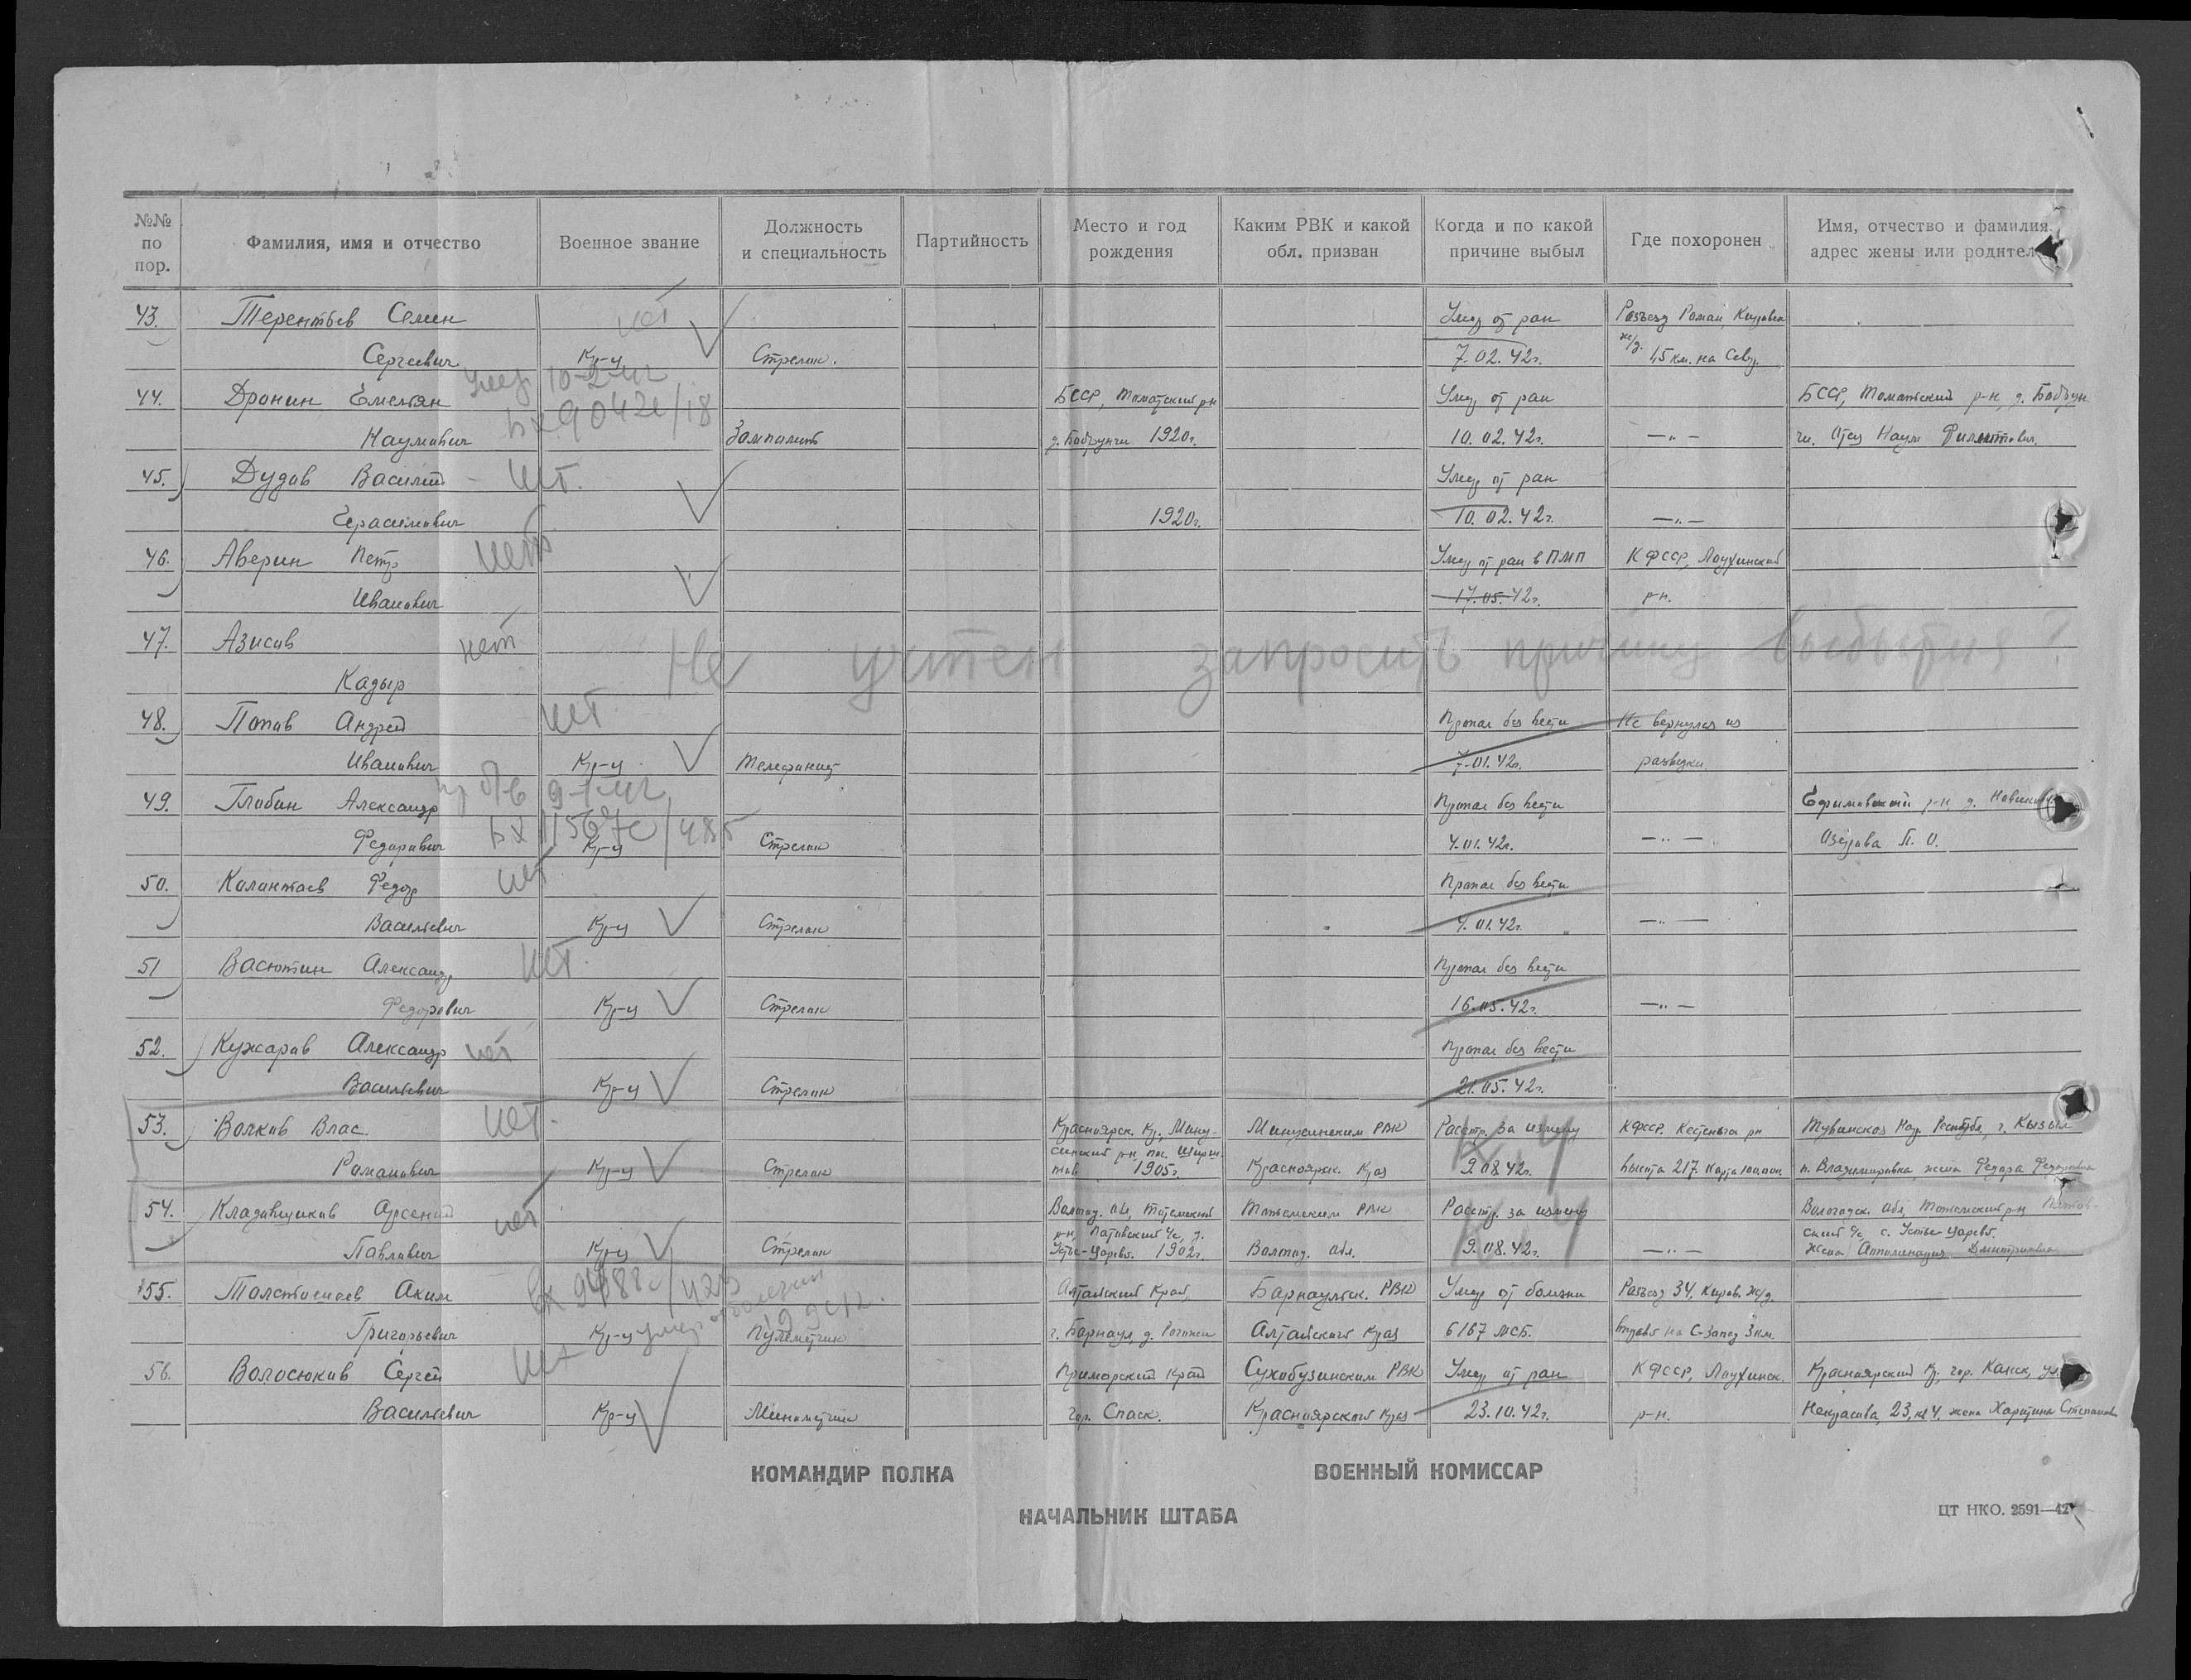 №№ по пор.
Фамилия, имя и отчество
Военное звание
Должность и специальность
Партийность
Место и год рождения
Каким РВК и какой обл. призван
Когда и по какой причине выбыл
Где похоронен
Имя, отчество и фамилия адрес жены или
43. Терентьев Семен нет Умер от ран Разъезд
Сергеевич Кр-ц Стрелок. 7.02.42г. 1,5 км. на Сев.
44. Дронин Емельян умер 10-2-42 БССР, р-н Умер от ран БССР, р-н, д.
Наумович Вх 9042с/18 Замполит 1920г. 10.02.42г. —„— Отец Наум
45. Дудов Василий - нет. Умер от ран
Герасимович 1920г. 10.02.42г. —„—
46. Аверин Петр нет Умер от ран в ПМП КФССР, Лоухинский
Иванович 17.05.42г. р-н.
47. Азисов нет Не учтен запросить причину выбытия?
Кадыр
48. Попов Андрей нет Пропал без вести Не вернулся из
Иванович Кр-ц Телефонист 7.01.42г. разведки
49. Глобин Александр пр б/в 9-1-42 Пропал без вести р-н, д.
Федорович Вх 11567с/485 Кр-ц Стрелок 4.01.42г. —„— П. О.
50. Калантаев Федор нет Пропал без вести
Васильевич Кр-ц Стрелок 4.01.42г. —„—
51 Васютин Александр нет. Пропал без вести
Федорович Кр-ц Стрелок 16.05.42г. —„—
52. Кужаров Александр нет Пропал без вести
Васильевич Кр-ц Стрелок 21.05.42г.
53. Волков Влас нет. Красноярск. Кр., Мину- Минусинским РВК Расстр. за измену КФССР. Кестеньга рн Тувинская Нар. Республ., г. Кызыл
синский рн пос.
Романович Кр-ц Стрелок 1905г. Красноярск. Края 9.08.42г. высота 217. карта 100.000. п. Владимировка, жена Федора
54. Кладовщиков Арсений нет Волгод. обл, Тотемский Тотемским РВК Расстр. за измену Вологодск. обл, Тотемский р-н
р-н, д. с/с, с. Устье-Царевс.
Павлович Кр-ц Стрелок Устье-Царевс. 1902г. Волгод. обл. 9.08.42г. —„— Жена Аполинария Дмитриевна
55. Аким Вх 94188с/423 Алтайский Край, Барнаульск. РВК Умер от болезни Разъезд 34, Киров. ж/д.
Григорьевич Кр-ц умер от болезни Пулеметчик г. Барнаул, д. Алтайского Края 6167 МСБ. на С-Запад 3км.
56. Волосюков Сергей нет Приморский Край Сухобузинским РВК Умер от ран КФССР, Лоухинск. Красноярский Кр, гор. Канск, ул.
Васильевич Кр-ц Минометчик гор. Спаск. Красноярского Края 23.10.42г. р-н. Некрасова, 23, кв 4. жена Харитина
КОМАНДИР ПОЛКА
ВОЕННЫЙ КОМИССАР
НАЧАЛЬНИК ШТАБА
ЦТ НКО. 2591—42